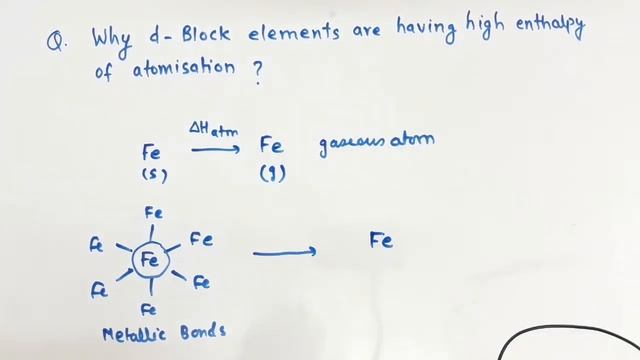 Q. Why d-Block elements are having high enthalpy
of atomisation ?
ΔHatm
Fe → Fe gaseous atom
(s) (g)
Fe
Fe Fe
Fe → Fe
Fe Fe
Fe
Metallic Bonds